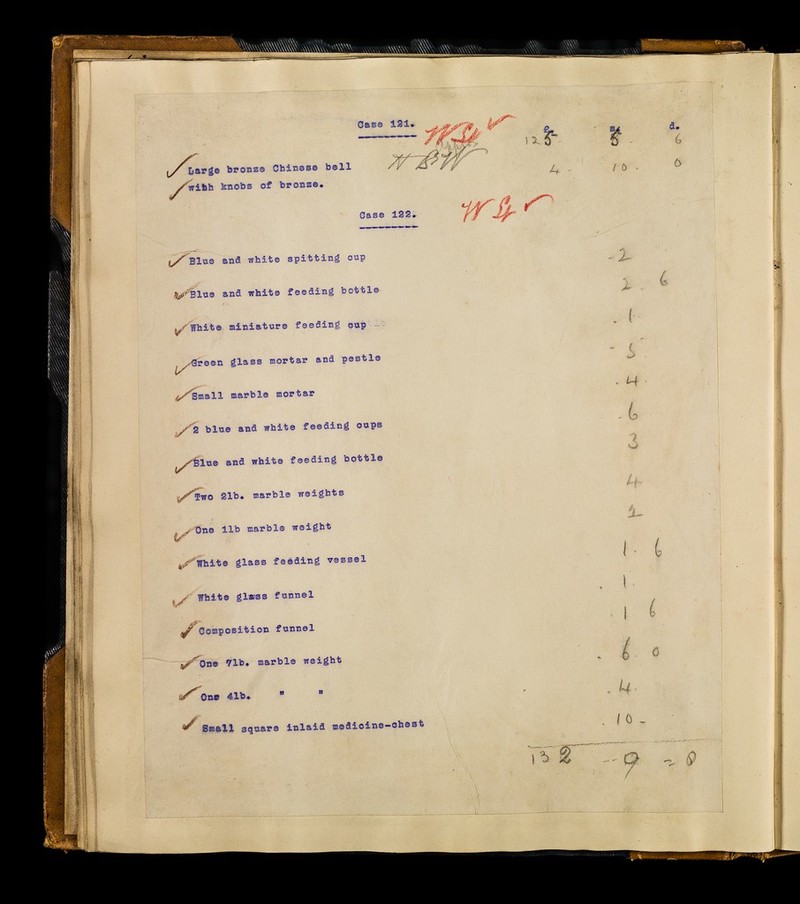 Case 121.
£. s. d.
125 5 6
Large bronze Chinese bell 4 10 0
with knobs of bronze.
Case 122.
Blue and white spitting cup 2
Blue and white feeding bottle 2 . 6
White miniature feeding cup 1
Green glass mortar and pestle 5
Small marble mortar 4
2 blue and white feeding cups 6
Blue and white feeding bottle 3
Two 2lb. marble weights 4
One 1lb marble weight
White glass feeding vessel 1 . 6
White glass funnel 1
Composition funnel 1 6
One 7lb. marble weight 6 0
One 4lb. " " 4
Small square inlaid medicine-chest 10 -
132 -- 9 = 0